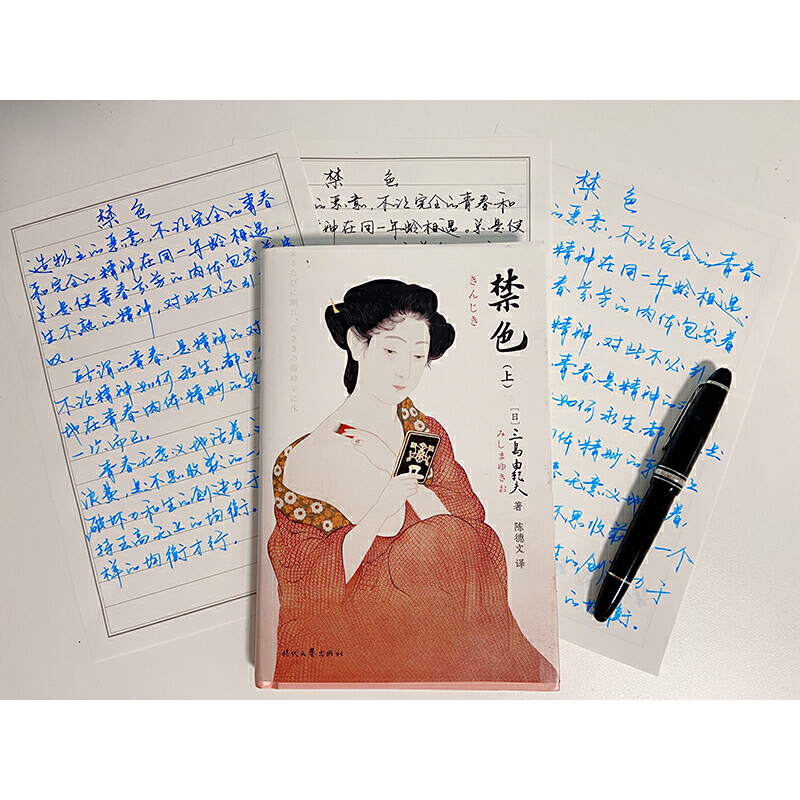 禁色
造物主的恶意，不让完全的青春
和完全的精神在同一年龄相遇，
总是使青春芬芳的肉体包容着
生不熟的精神，对此不必引
叹。
所谓的青春，是精神的对
不论精神如何永生，都只
在青春肉体精妙的
一次而已。
青春无意义地活着，
浪费，是不思收获的一
破坏力和生的创造力于
持至高无上的均衡。
样的均衡才行。
禁色
的恶意，不让完全的青春和
精神在同一年龄相遇。总是使
禁色
的恶意，不让完全的青春
精神在同一年龄相遇。
春芬芳的肉体包容着
精神，对此不必引
青春，是精神的
如何永生，都是
体精妙的上
无意义地着，
不思收获一个
的创力于
的均衡。
禁色
きんじき
（上）
［日］三岛由纪夫 著
みしまゆきお
陈德文 译
时代文艺出版社